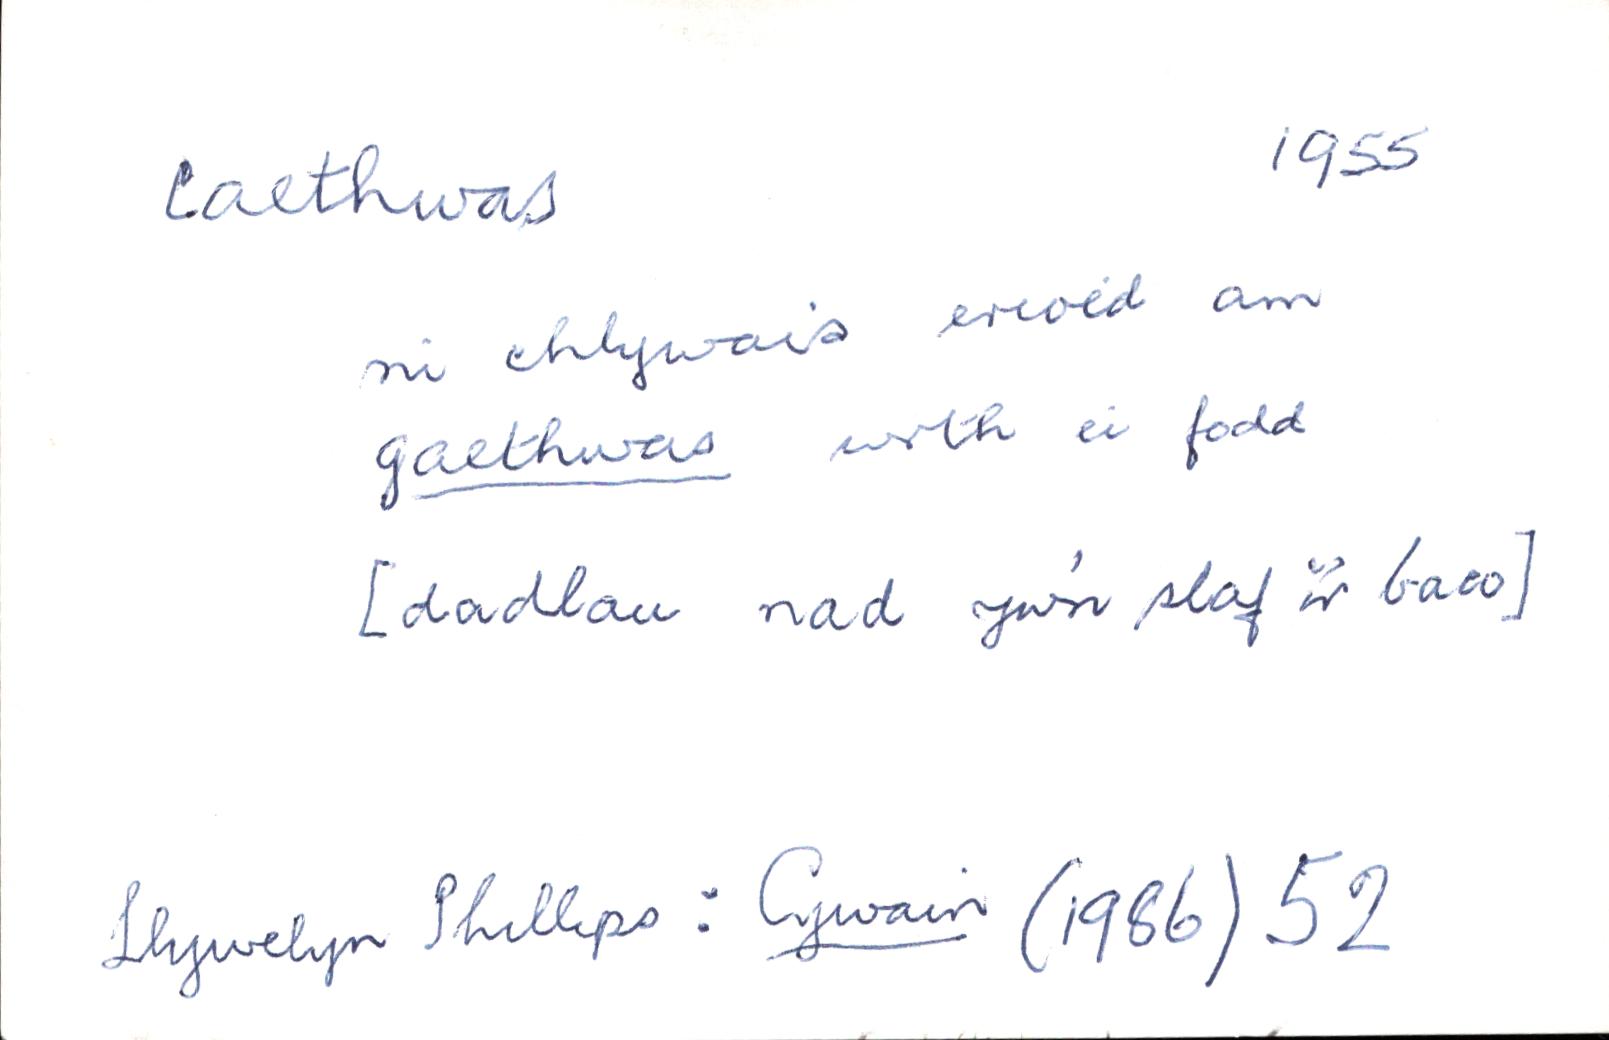 Caethwas 1955
ni chlywais erioed am
gaethwas wrth ei fodd
[dadlau nad yw'n slaf i'r baco]
Llywelyn Phillips: Cywain (1986) 52